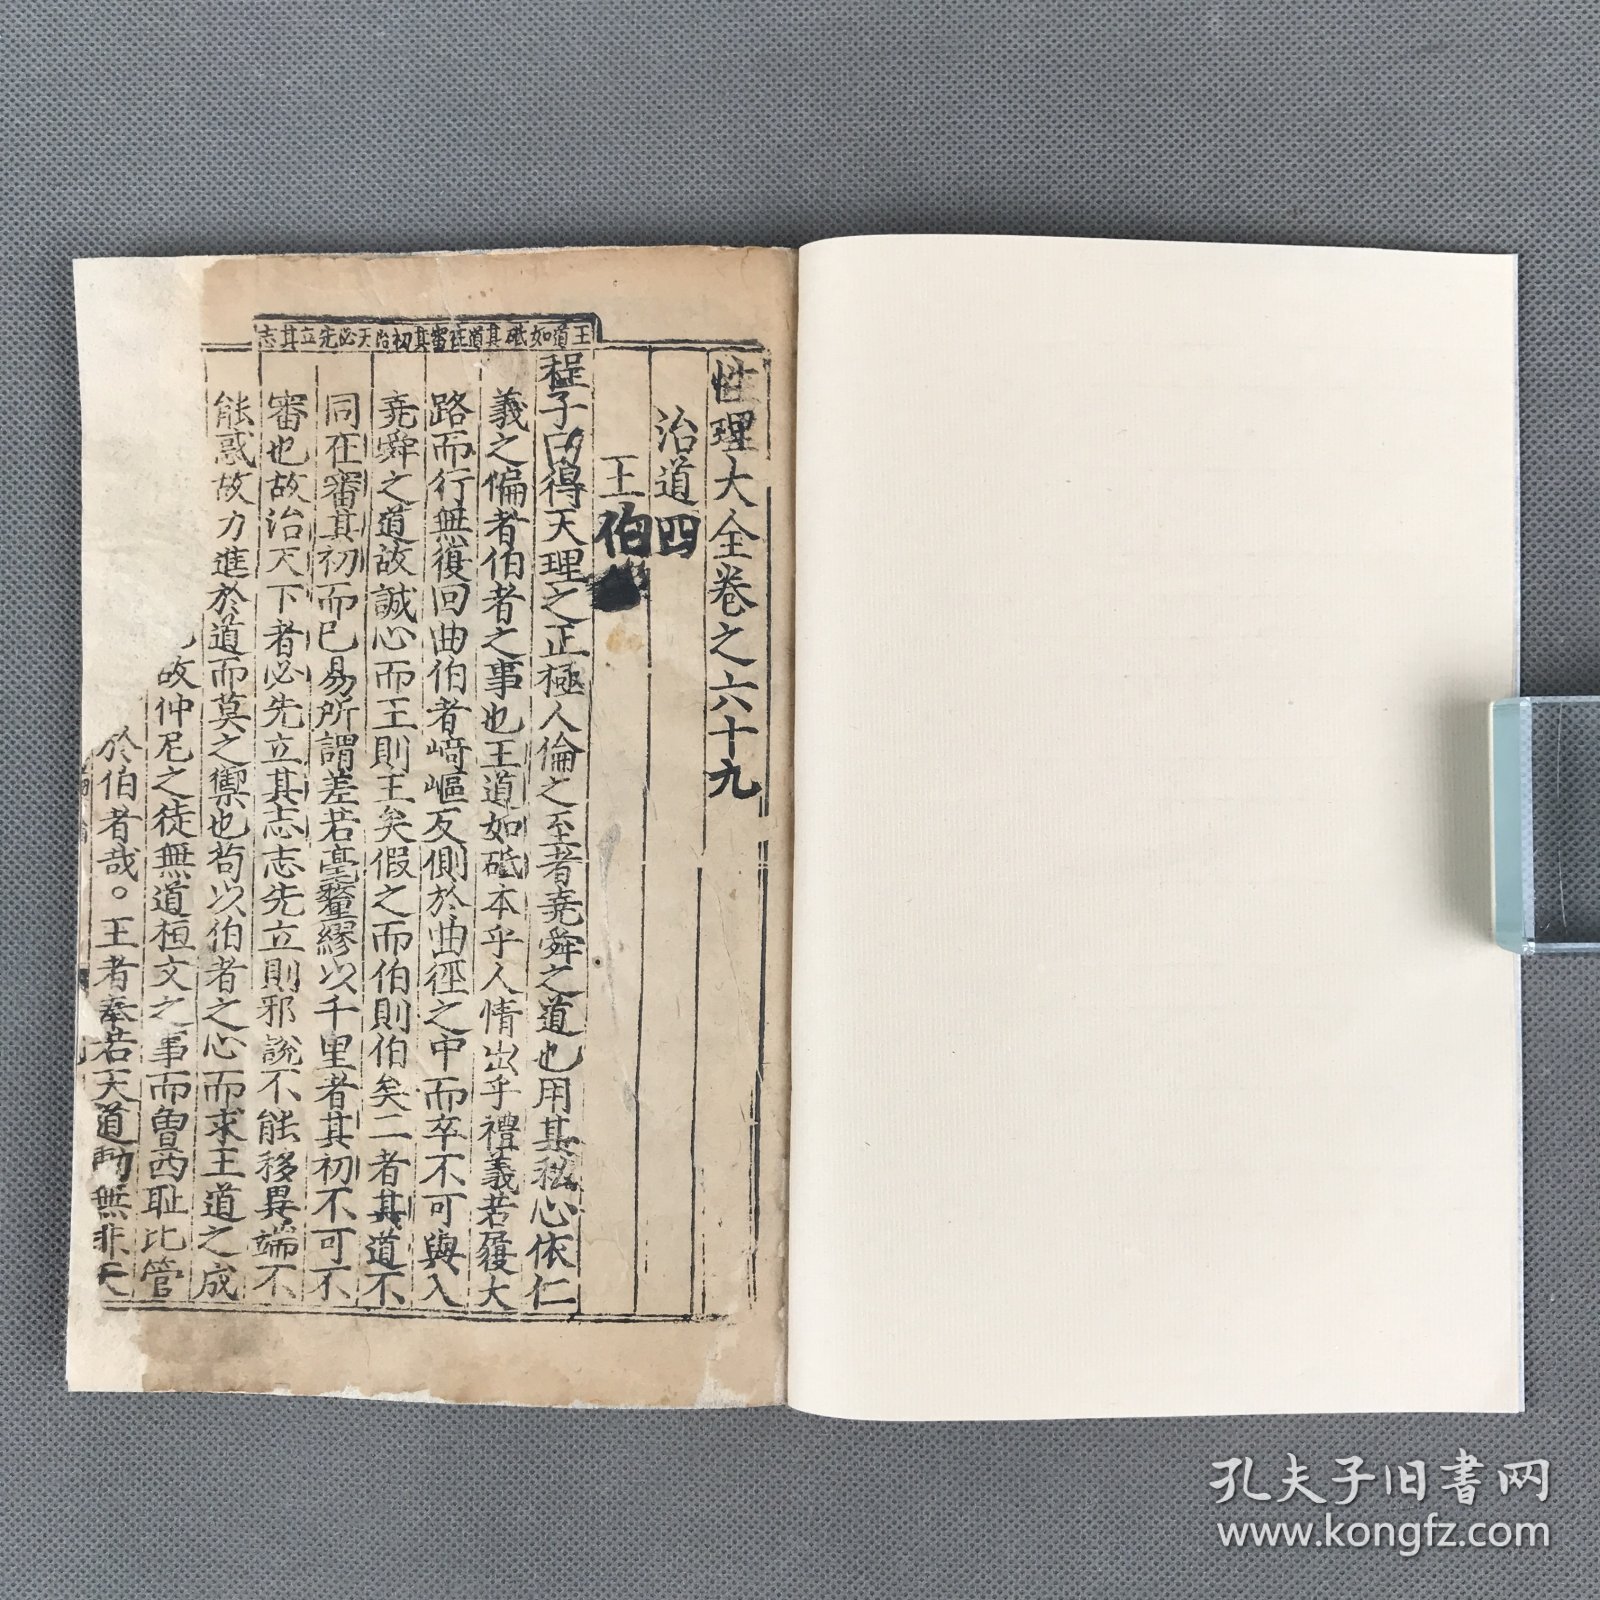 性理大全卷之六十九
治道四
王伯
王道如砥其道在審其初治天必先立其志
程子曰得天理之正極人倫之至者堯舜之道也用其私心依仁
義之偏者伯者之事也王道如砥本乎人情出乎禮義若履大
路而行無復回曲伯者崎嶇反側於曲徑之中而卒不可與入
堯舜之道故誠心而王則王矣假之而伯則伯矣二者其道不
同在審其初而已易所謂差若毫釐繆以千里者其初不可不
審也故治天下者必先立其志志先立則邪說不能移異端不
能惑故力進於道而莫之禦也苟以伯者之心而求王道之成
故仲尼之徒無道桓文之事而曾西恥比管
於伯者哉。王者奉若天道動無非天
孔夫子旧书网
www.kongfz.com